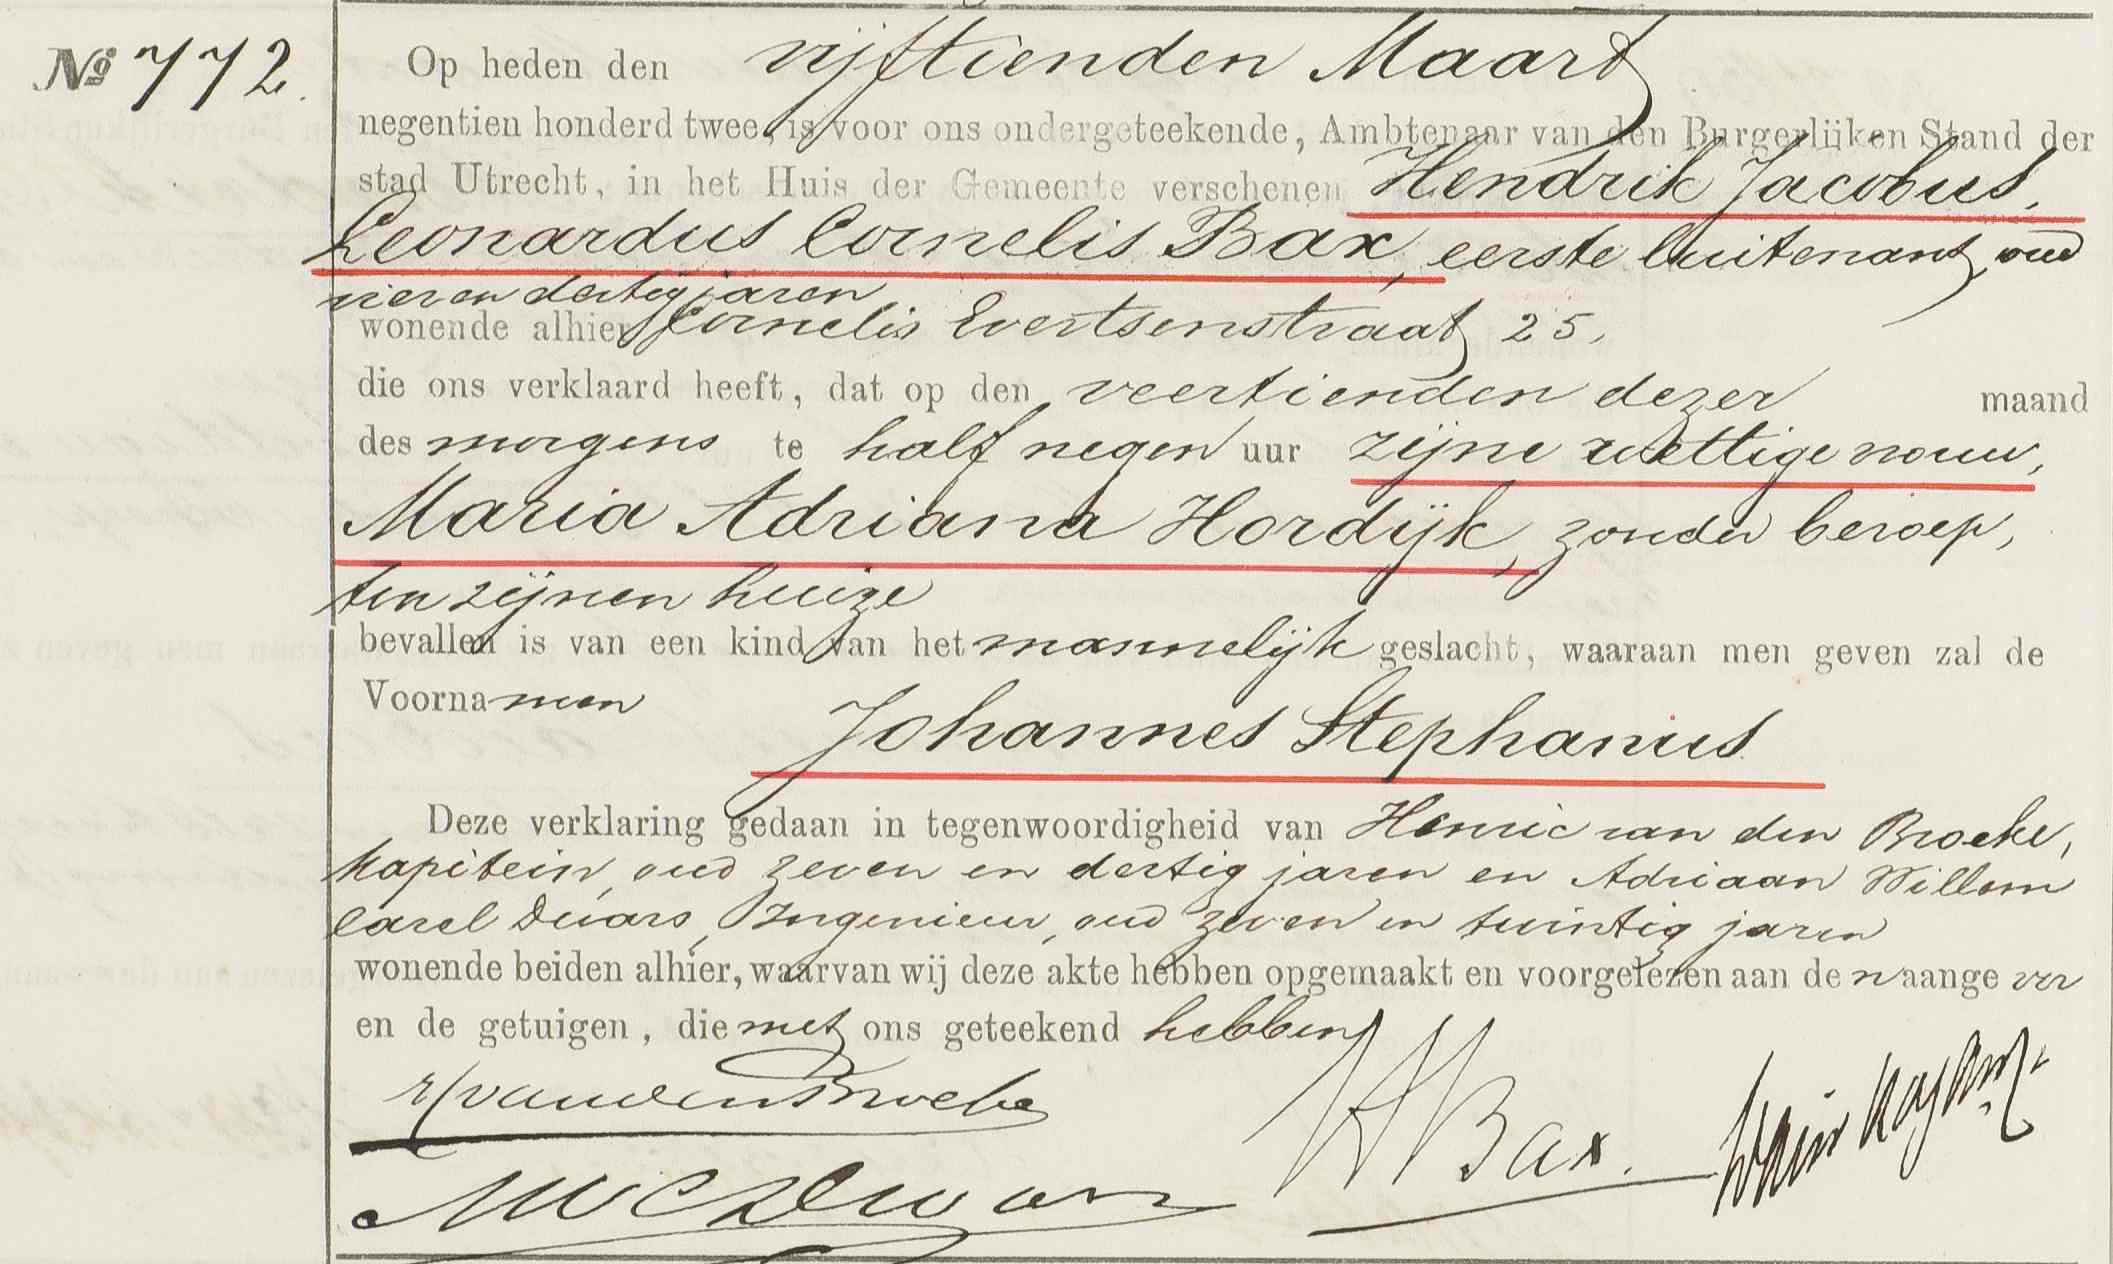 No 772.
Op heden den vijftienden Maart
negentien honderd twee, is voor ons ondergeteekende, Ambtenaar van den Burgerlijken Stand der
stad Utrecht, in het Huis der Gemeente verschenen Hendrik Jacobus,
Leonardus Cornelis Bax, eerste luitenant, oud
vier en dertig jaren
wonende alhier Cornelis Evertsenstraat 25,
die ons verklaard heeft, dat op den veertienden dezer maand
des morgens te half negen uur zijne wettige vrouw,
Maria Adriana Hordijk, zonder beroep,
ten zijnen huize
bevallen is van een kind van het mannelijk geslacht, waaraan men geven zal de
Voornamen Johannes Stephanus
Deze verklaring gedaan in tegenwoordigheid van Henric van den Broeke,
kapitein, oud zeven en dertig jaren en Adriaan Willem
Carel Dwars, Ingenieur, oud zeven en twintig jaren
wonende beiden alhier, waarvan wij deze akte hebben opgemaakt en voorgelezen aan den aangever
en de getuigen, die met ons geteekend hebben
HvandenBroeke
HBax.
AWCDwars